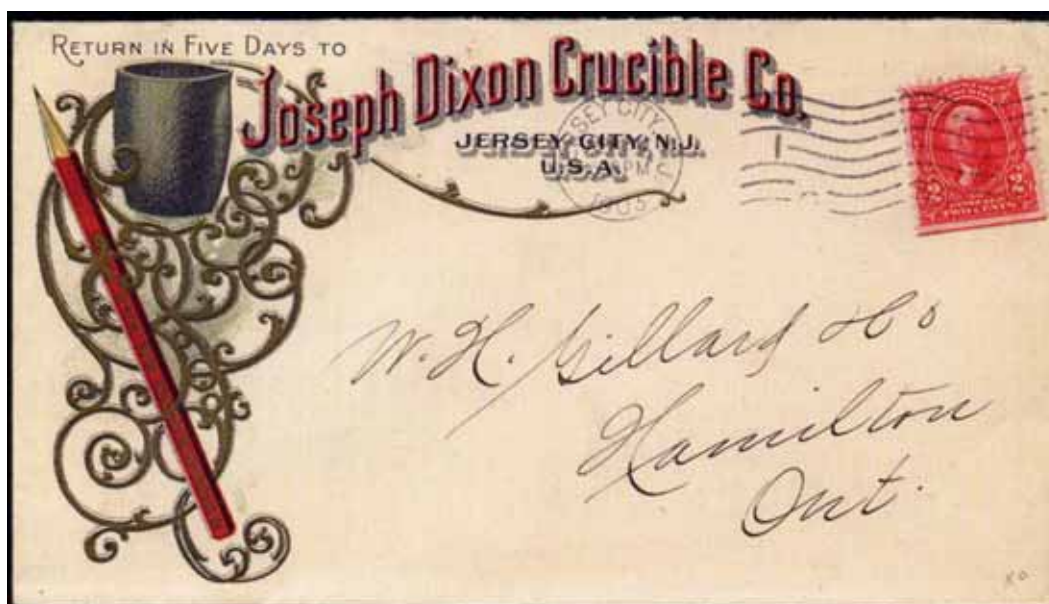 RETURN IN FIVE DAYS TO
Joseph Dixon Crucible Co.
JERSEY CITY, N.J.
U.S.A.
SEY CITY
PM
1905
2 2
TWO CENTS
W. H. Gillard & Co
Hamilton
Ont.